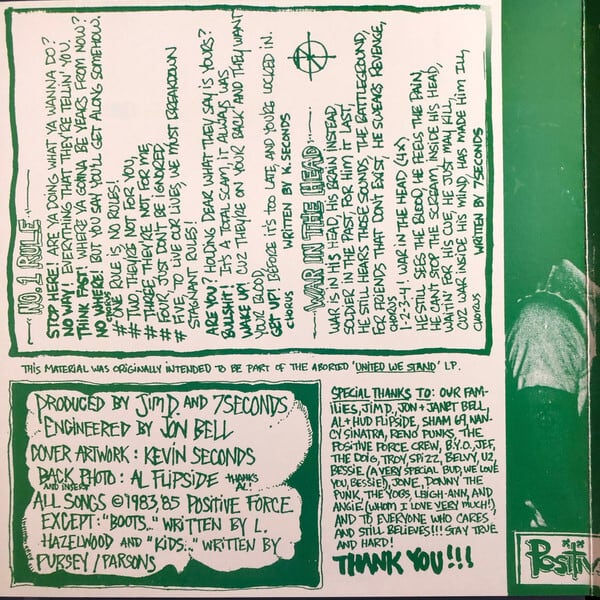 NO 1 RULE
STOP HERE! ARE YA DOING WHAT YA WANNA DO?
NO WAY! EVERYTHING THAT THEY'RE TELLIN' YOU.
THINK FAST! WHERE YA GONNA BE YEARS FROM NOW?
NO WHERE! BUT YOU SAY YOU'LL GET ALONG SOMEHOW.
CHORUS
# ONE RULE IS, NO RULES!
# TWO THEY'RE NOT FOR YOU,
# THREE THEY'RE NOT FOR ME,
# FOUR, JUST DON'T BE IGNORED,
# FIVE, TO LIVE OUR LIVES, WE MUST BREAKDOWN
STAGNANT RULES!
ARE YOU? HOLDING DEAR WHAT THEY SAY IS YOURS?
BULLSHIT! IT'S A TOTAL SCAM, IT ALWAYS WAS
WAKE UP! CUZ THEY'RE ON YOUR BACK AND THEY WANT
YOUR BLOOD,
GET UP! BEFORE IT'S TOO LATE, AND YOU'RE LOCKED IN.
CHORUS WRITTEN BY K. SECONDS
WAR IN THE HEAD
WAR IS IN HIS HEAD, HIS BRAIN INSTEAD,
SOLDIER IN THE PAST, FOR HIM IT LAST,
HE STILL HEARS THOSE SOUNDS, THE BATTLEGROUND,
FOR FRIENDS THAT DON'T EXIST, HE SWEARS REVENGE,
CHORUS
1-2-3-4! WAR IN THE HEAD (4X)
HE STILL SEES THE BLOOD, HE FEELS THE PAIN,
HE CAN'T STOP THE SCREAM, INSIDE HIS HEAD,
WAITIN' FOR HIS CUE, HE JUST MAY KILL,
CUZ WAR INSIDE HIS MIND, HAS MADE HIM ILL,
CHORUS WRITTEN BY 7SECONDS
THIS MATERIAL WAS ORIGINALLY INTENDED TO BE PART OF THE ABORTED 'UNITED WE STAND' LP.
PRODUCED BY JIM D. AND 7SECONDS
ENGINEERED BY JON BELL
COVER ARTWORK: KEVIN SECONDS
BACK PHOTO: AL FLIPSIDE THANKS
AND INSERT AL!
ALL SONGS ©1983,85 POSITIVE FORCE
EXCEPT: "BOOTS.." WRITTEN BY L.
HAZELWOOD AND "KIDS..." WRITTEN BY
PURSEY/PARSONS
SPECIAL THANKS TO: OUR FAM-
ILIES, JIM D, JON + JANET BELL,
AL + HUD FLIPSIDE, SHAM 69, NAN-
CY SINATRA, RENO PUNKS, THE
POSITIVE FORCE CREW, B.Y.O, JEF,
THE DOIG, TROY, SPIZZ, BELVY, U2,
BESSIE (A VERY SPECIAL BUD, WE LOVE
YOU, BESSIE!), JONE, DONNY THE
PUNK, THE YOBS, LEIGH-ANN, AND
ANGIE (WHOM I LOVE VERY MUCH!),
AND TO EVERYONE WHO CARES
AND STILL BELIEVES!!! STAY TRUE
AND HARD!
THANK YOU!!!
POSITIV